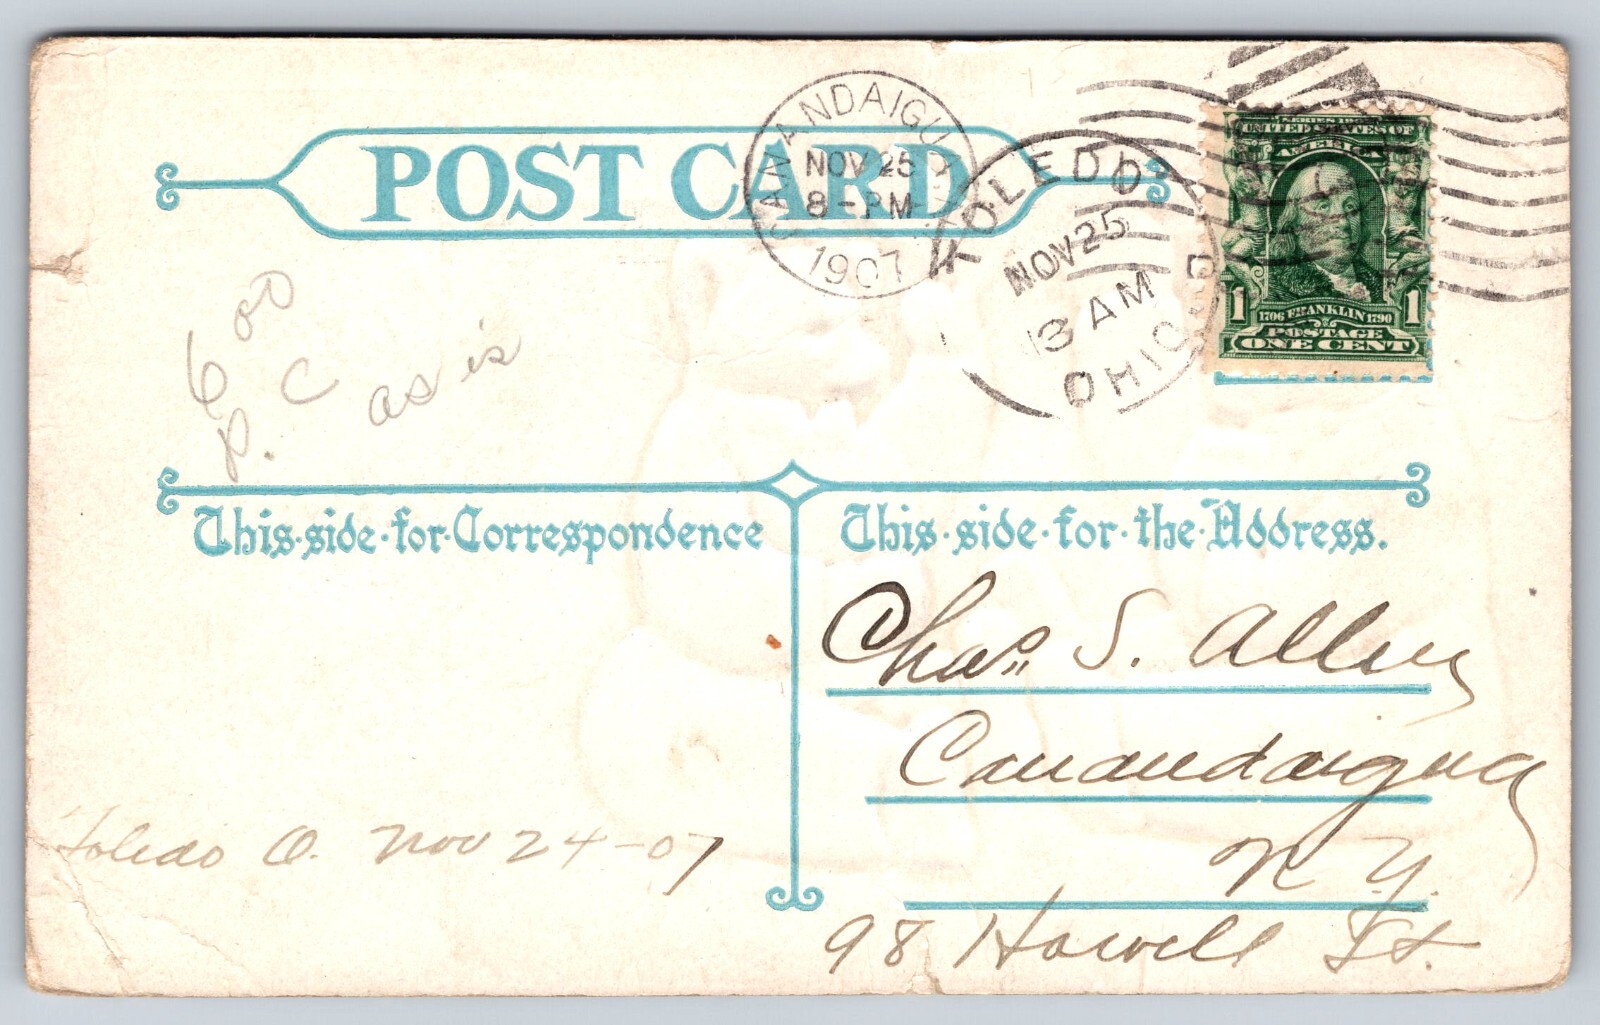 POST CARD
CANANDAIGUA
NOV 25
8-PM
1907
TOLEDO
NOV 25
3 AM
OHIO
SERIES 1902
UNITED STATES OF
AMERICA
1 1706 FRANKLIN 1790 1
POSTAGE
ONE CENT
6 00
P. C as is
This·side·for·Correspondence
This·side·for·the·Address.
Chas. S. Allen
Canandaigua
N Y.
98 Howell St.
Toledo O. Nov 24-07